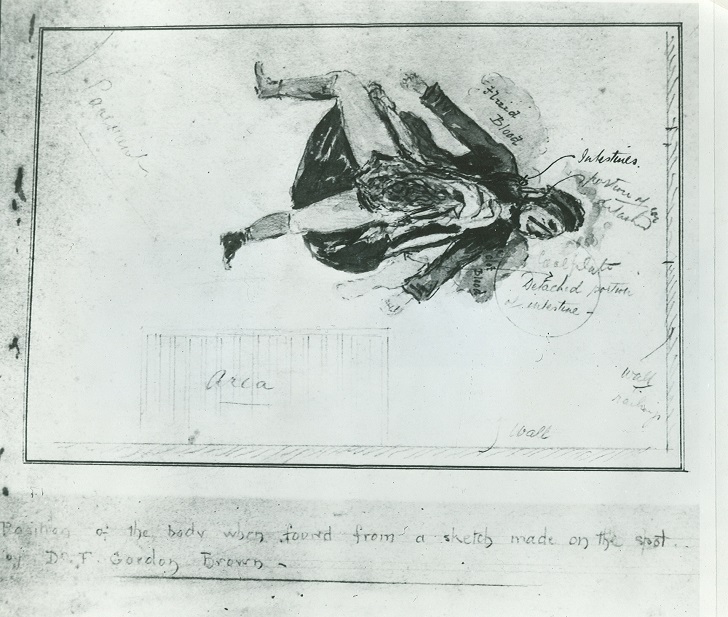 Pavement
Fluid
Blood
Intestines
portion of ear
detached
Coal plate
Detached portion
of intestine -
Blood
Wall
railings
Area
Wall
Position of the body when found from a sketch made on the spot.
by Dr. F. Gordon Brown -